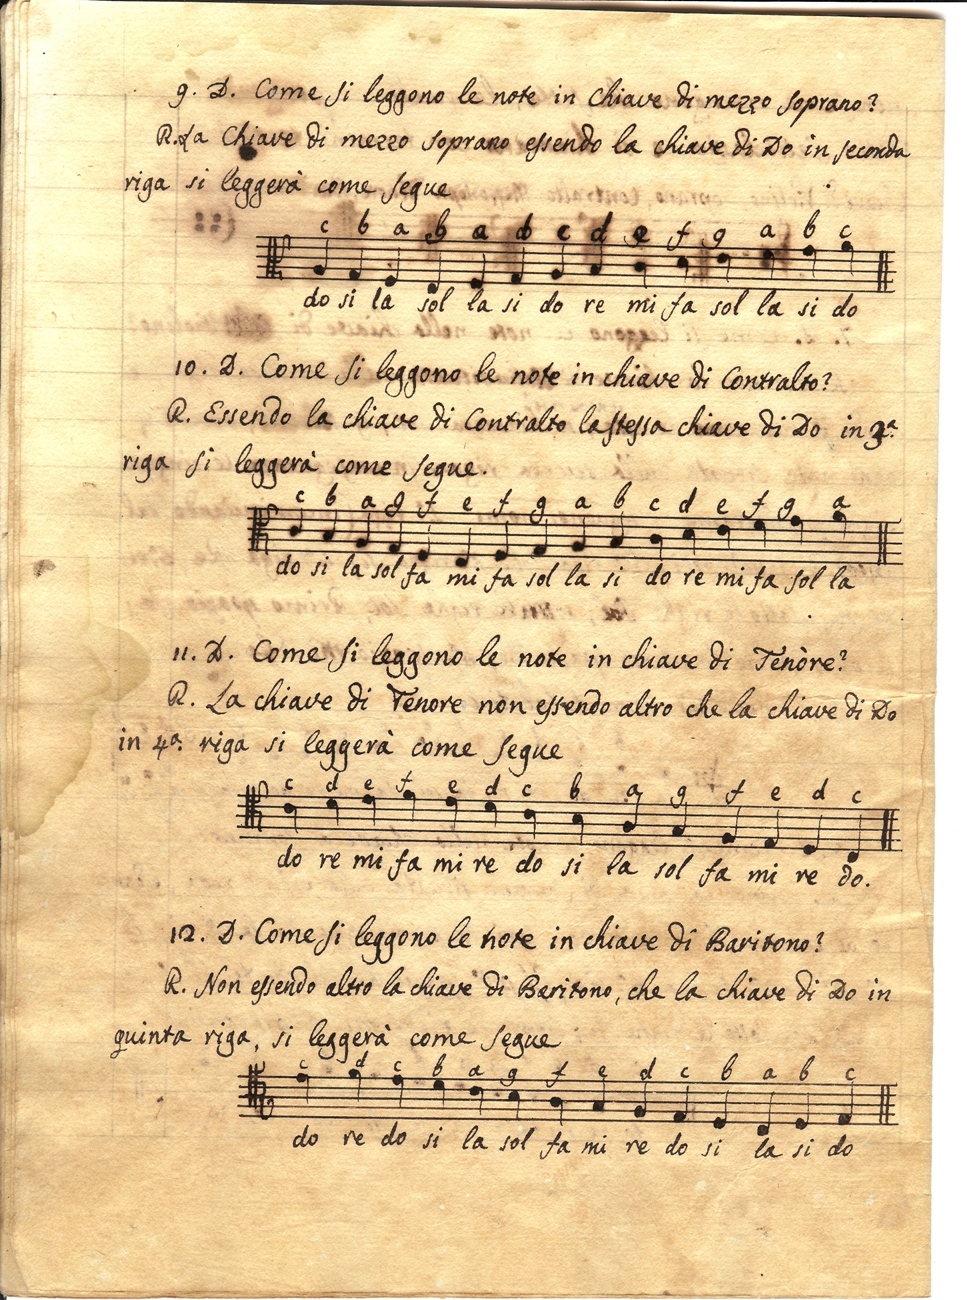 9. D. Come si leggono le note in chiave di mezzo soprano?
R. La Chiave di mezzo soprano essendo la chiave di Do in seconda
riga si leggerà come segue
c b a g a b c d e f g a b c
do si la sol la si do re mi fa sol la si do
10. D. Come si leggono le note in chiave di Contralto?
R. Essendo la chiave di Contralto la stessa chiave di Do in 3ª
riga si leggerà come segue.
c b a g f e f g a b c d e f g a
do si la sol fa mi fa sol la si do re mi fa sol la
11. D. Come si leggono le note in chiave di Tenòre?
R. La chiave di Tenore non essendo altro che la chiave di Do
in 4ª riga si leggerà come segue
c d e f e d c b a g f e d c
do re mi fa mi re do si la sol fa mi re do.
12. D. Come si leggono le note in chiave di Baritono?
R. Non essendo altro la chiave di Baritono, che la chiave di Do in
quinta riga, si leggerà come segue
c d c b a g f e d c b a b c
do re do si la sol fa mi re do si la si do